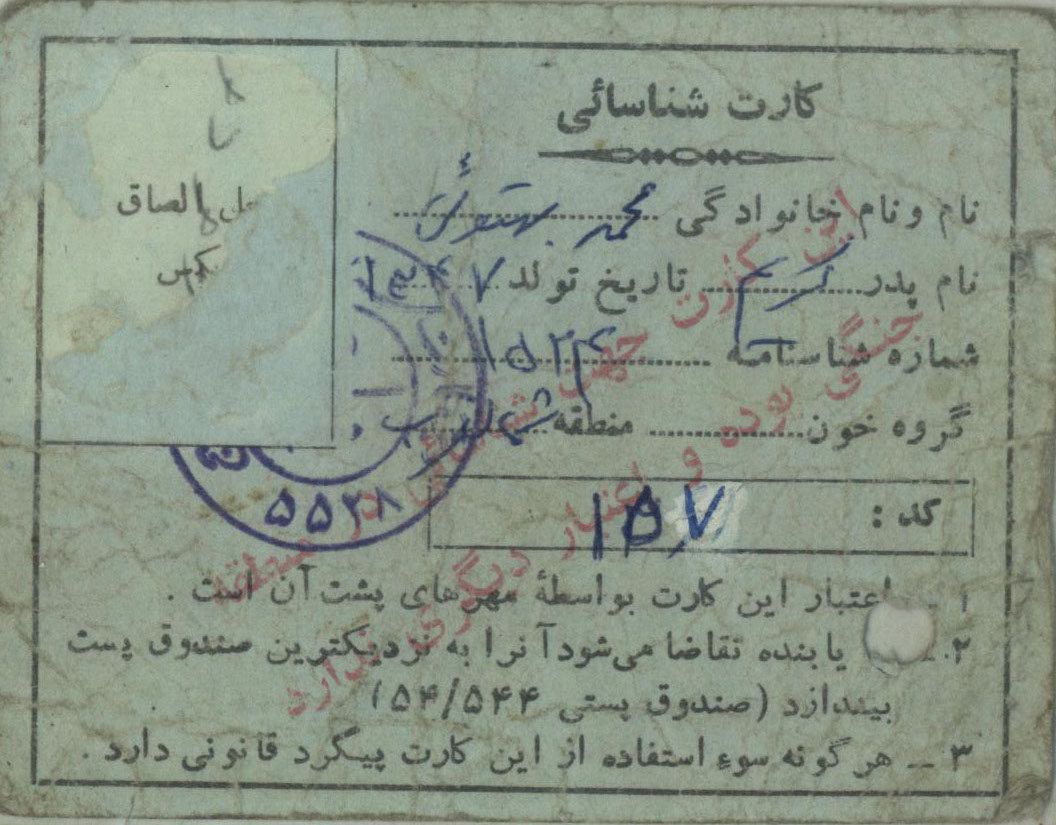 کارت شناسائی
نام و نام خانوادگی محمد
نام پدر تاریخ تولد ۱۳۴۷
شماره شناسنامه ۱۵۲۴
گروه خون منطقه
کد : ۱۵۷
محل الصاق
عکس
۵۵۲۸
۱ – اعتبار این کارت بواسطهٔ مهرهای پشت آن است .
۲ – یابنده تقاضا می‌شود آنرا به نزدیکترین صندوق پست
بیندازد (صندوق پستی ۱۵۴/۵۴۴)
۳ – هرگونه سوء استفاده از این کارت پیگرد قانونی دارد .
این کارت جهت شناسائی در منطقه
جنگی بوده و اعتبار دیگری ندارد